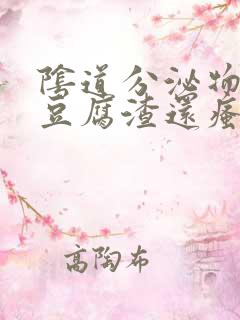 陰道分泌物
豆腐渣還瘙
高陶布